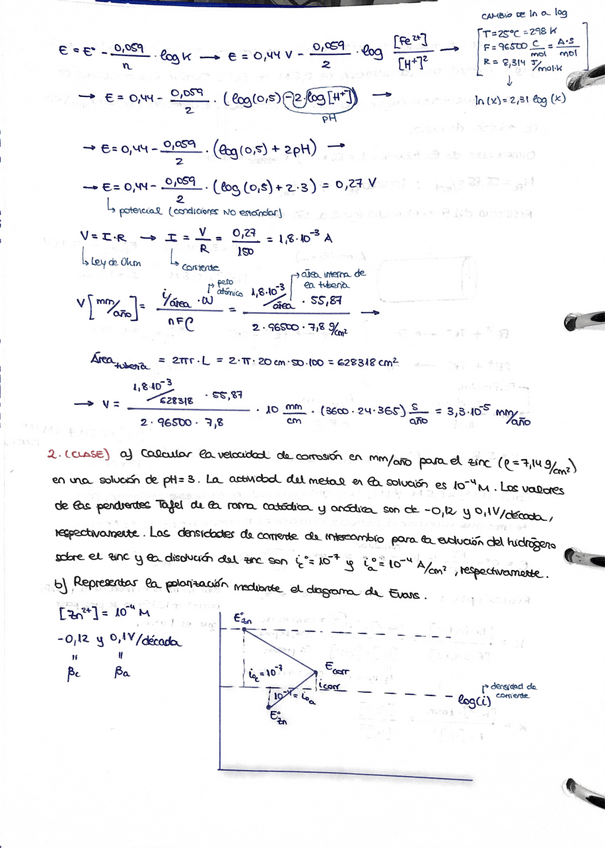 CAMBIO DE ln a log
E = E° - 0,059/n · log K → E = 0,44 V - 0,059/2 · log [Fe²⁺]/[H⁺]² →
[T = 25°C = 298 K
F = 96500 C/mol = A·S/mol
R = 8,314 J/mol·K]
↓
ln(x) = 2,31 log(x)
→ E = 0,44 - 0,059/2 · (log(0,5) - 2·log[H⁺]) →
pH
→ E = 0,44 - 0,059/2 · (log(0,5) + 2pH) →
→ E = 0,44 - 0,059/2 · (log(0,5) + 2·3) = 0,27 V
↳ potencial (condiciones NO estándar)
V = I·R → I = V/R = 0,27/150 = 1,8·10⁻³ A
↳ Ley de Ohm ↳ corriente
peso atómico
área interna de la tubería
V[mm/año] = (i/área · W)/(nFρ) = (1,8·10⁻³/área · 55,87)/(2·96500·7,8 g/cm²) →
Área tubería = 2πr·L = 2·π·20 cm·50·100 = 628318 cm²
→ V = (1,8·10⁻³/628318 · 55,87)/(2·96500·7,8) · 10 mm/cm · (3600·24·365) s/año = 3,3·10⁻⁵ mm/año
2. (CLASE) a) Calcular la velocidad de corrosión en mm/año para el zinc (ρ = 7,14 g/cm²)
en una solución de pH = 3. La actividad del metal en la solución es 10⁻⁴ M. Los valores
de las pendientes Tafel de la rama catódica y anódica son de -0,12 y 0,1V/década,
respectivamente. Las densidades de corriente de intercambio para la evolución del hidrógeno
sobre el zinc y la disolución del zinc son i°c = 10⁻⁷ y i°a = 10⁻⁴ A/cm², respectivamente.
b) Representar la polarización mediante el diagrama de Evans.
[Zn²⁺] = 10⁻⁴ M
-0,12 y 0,1V/década
" "
βc βa
E°Zn
i°c = 10⁻⁷
Ecorr
icorr
10⁻⁴ = i°a
E°Zn
log(i)
densidad de corriente